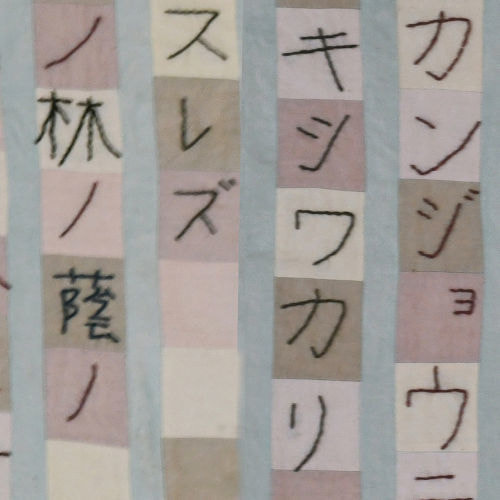 カンジョウニ
キシワカリ
スレズ
ノ林ノ蔭ノ